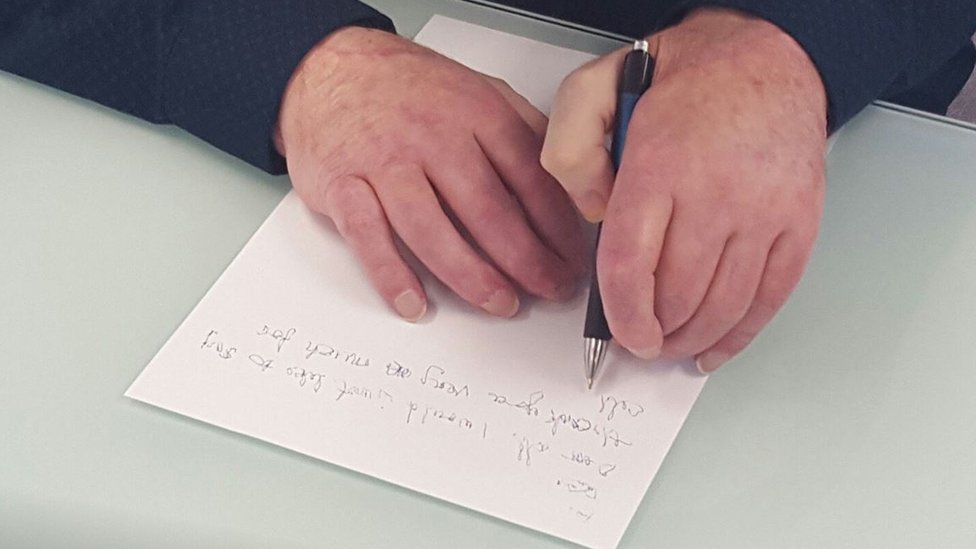 Re:
Dear all. I would just like to say
thank you very much for
all